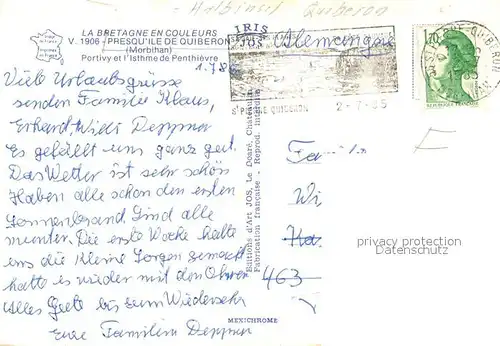 Halbinsel Quiberon
LA BRETAGNE EN COULEURS
V. 1906 - PRESQU'ILE DE QUIBERON
(Morbihan)
Portivy et l'Isthme de Penthièvre
IRIS
JOS
Allemangne
1.7.85
Viele Urlaubsgrüsse
senden Familie Klaus,
Erhard, Willi Deppner
Es gefällt uns ganz gut.
Das Wetter ist sehr schön
Haben alle schon den ersten
Sonnenbrand. Sind alle
munter. Die erste Woche hatte
uns die Kleine Sorgen gemacht
hatte es wieder mit den Ohren
Alles Gute bis zum Wiedersehn
Eure Familie Deppner
ST PIERRE QUIBERON
2-7-85
1,70
REPUBLIQUE FRANÇAISE
Editions d'Art JOS, Le Doaré, Châteaulin
Fabrication française - Reprod. interdite
Fa
Wi
463
privacy protection
Datenschutz
MEXICHROME